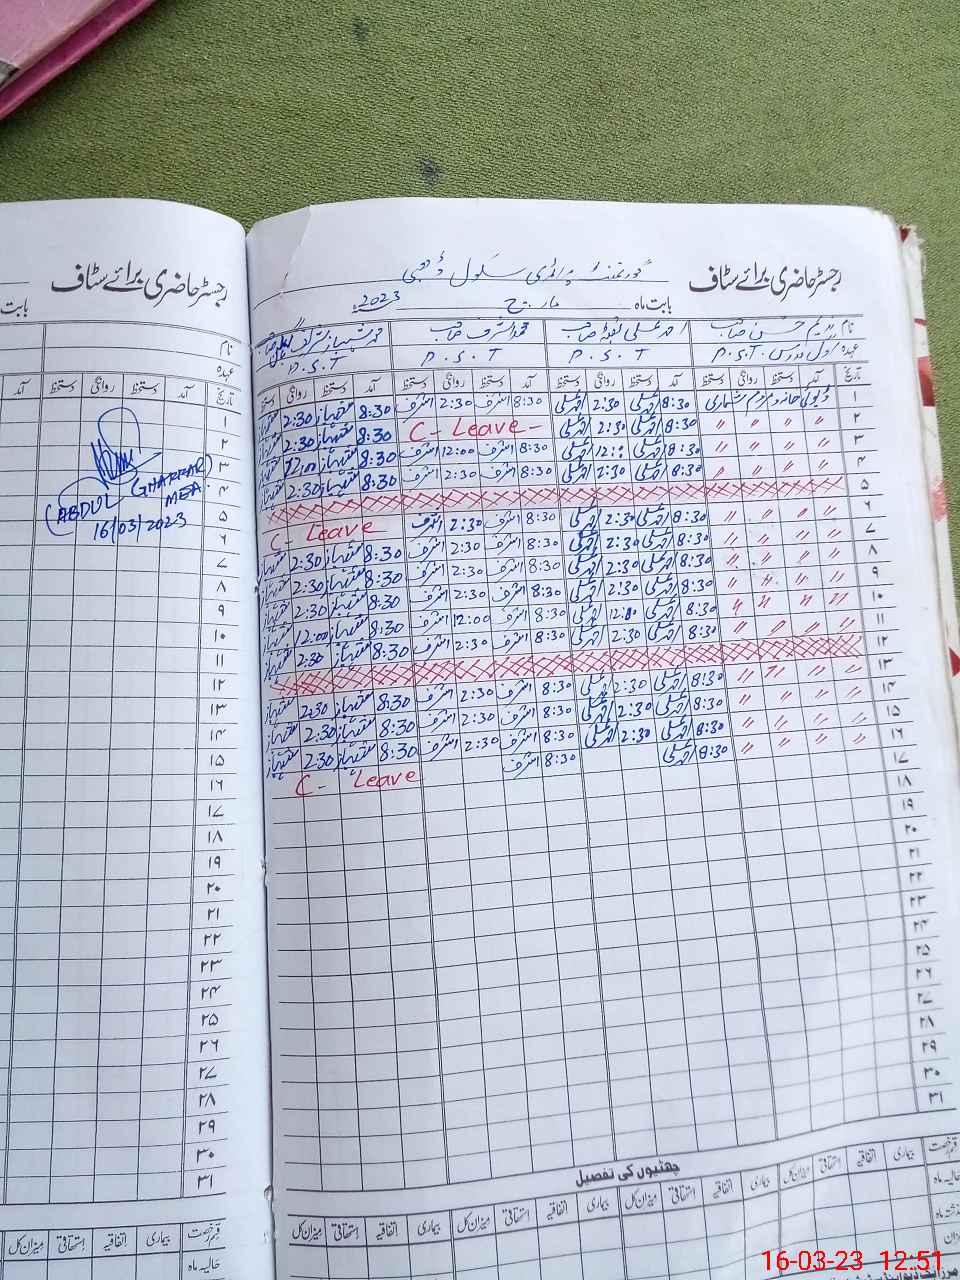 رجسٹر حاضری برائے سٹاف
گورنمنٹ پرائمری سکول
بابت ماہ مارچ 2023ء
نام ندیم حسن صاحب احمد علی صاحب محمد اشرف صاحب محمد شہباز
عہدہ اول مدرس P.S.T P.S.T P.S.T P.S.T
تاریخ آمد دستخط روانگی دستخط آمد دستخط روانگی دستخط آمد دستخط روانگی دستخط آمد دستخط روانگی دستخط
۱ ڈیوٹی خانہ و مردم شماری 8:30 احمد علی 2:30 احمد علی 8:30 اشرف 2:30 اشرف 8:30 شہباز 2:30 شہباز
۲〃 〃 〃 〃 8:30 احمد علی 2:30 احمد علی C - Leave - 8:30 شہباز 2:30 شہباز
۳ 〃 〃 〃 〃 8:30 احمد علی 12:00 احمد علی 8:30 اشرف 12:00 اشرف 8:30 شہباز 12:00 شہباز
۴ 〃 〃 〃 〃 8:30 احمد علی 2:30 احمد علی 8:30 اشرف 2:30 اشرف 8:30 شہباز 2:30 شہباز
۵
۶ 〃 〃 〃 〃 8:30 احمد علی 2:30 احمد علی 8:30 اشرف 2:30 اشرف C - Leave
۷ 〃 〃 〃 〃 8:30 احمد علی 2:30 احمد علی 8:30 اشرف 2:30 اشرف 8:30 شہباز 2:30 شہباز
۸ 〃 〃 〃 〃 8:30 احمد علی 2:30 احمد علی 8:30 اشرف 2:30 اشرف 8:30 شہباز 2:30 شہباز
۹ 〃 〃 〃 〃 8:30 احمد علی 2:30 احمد علی 8:30 اشرف 2:30 اشرف 8:30 شہباز 2:30 شہباز
۱۰ 〃 〃 〃 〃 8:30 احمد علی 12:00 احمد علی 8:30 اشرف 12:00 اشرف 8:30 شہباز 12:00 شہباز
۱۱ 〃 〃 〃 〃 8:30 احمد علی 2:30 احمد علی 8:30 اشرف 2:30 اشرف 8:30 شہباز 2:30 شہباز
۱۲
۱۳ 〃 〃 〃 〃 8:30 احمد علی 2:30 احمد علی 8:30 اشرف 2:30 اشرف 8:30 شہباز 2:30 شہباز
۱۴ 〃 〃 〃 〃 8:30 احمد علی 2:30 احمد علی 8:30 اشرف 2:30 اشرف 8:30 شہباز 2:30 شہباز
۱۵ 〃 〃 〃 〃 8:30 احمد علی 2:30 احمد علی 8:30 اشرف 2:30 اشرف 8:30 شہباز 2:30 شہباز
۱۶ 8:30 احمد علی 8:30 اشرف C - Leave
۱۷
۱۸
۱۹
۲۰
۲۱
۲۲
۲۳
۲۴
۲۵
۲۶
۲۷
۲۸
۲۹
۳۰
۳۱
چھٹیوں کی تفصیل
قسم رخصت بیماری اتفاقیہ استحقاقی میزان کل بیماری اتفاقیہ استحقاقی میزان کل بیماری اتفاقیہ استحقاقی میزان کل بیماری اتفاقیہ استحقاقی میزان کل
حالیہ ماہ
رجسٹر حاضری برائے سٹاف
بابت
نام
عہدہ
تاریخ آمد دستخط روانگی دستخط آمد
(ABDUL GHAFFAR)
MEA
16/03/2023
۱
۲
۳
۴
۵
۶
۷
۸
۹
۱۰
۱۱
۱۲
۱۳
۱۴
۱۵
۱۶
۱۷
۱۸
۱۹
۲۰
۲۱
۲۲
۲۳
۲۴
۲۵
۲۶
۲۷
۲۸
۲۹
۳۰
۳۱
قسم رخصت بیماری اتفاقیہ استحقاقی میزان کل
حالیہ ماہ
16-03-23 12:51